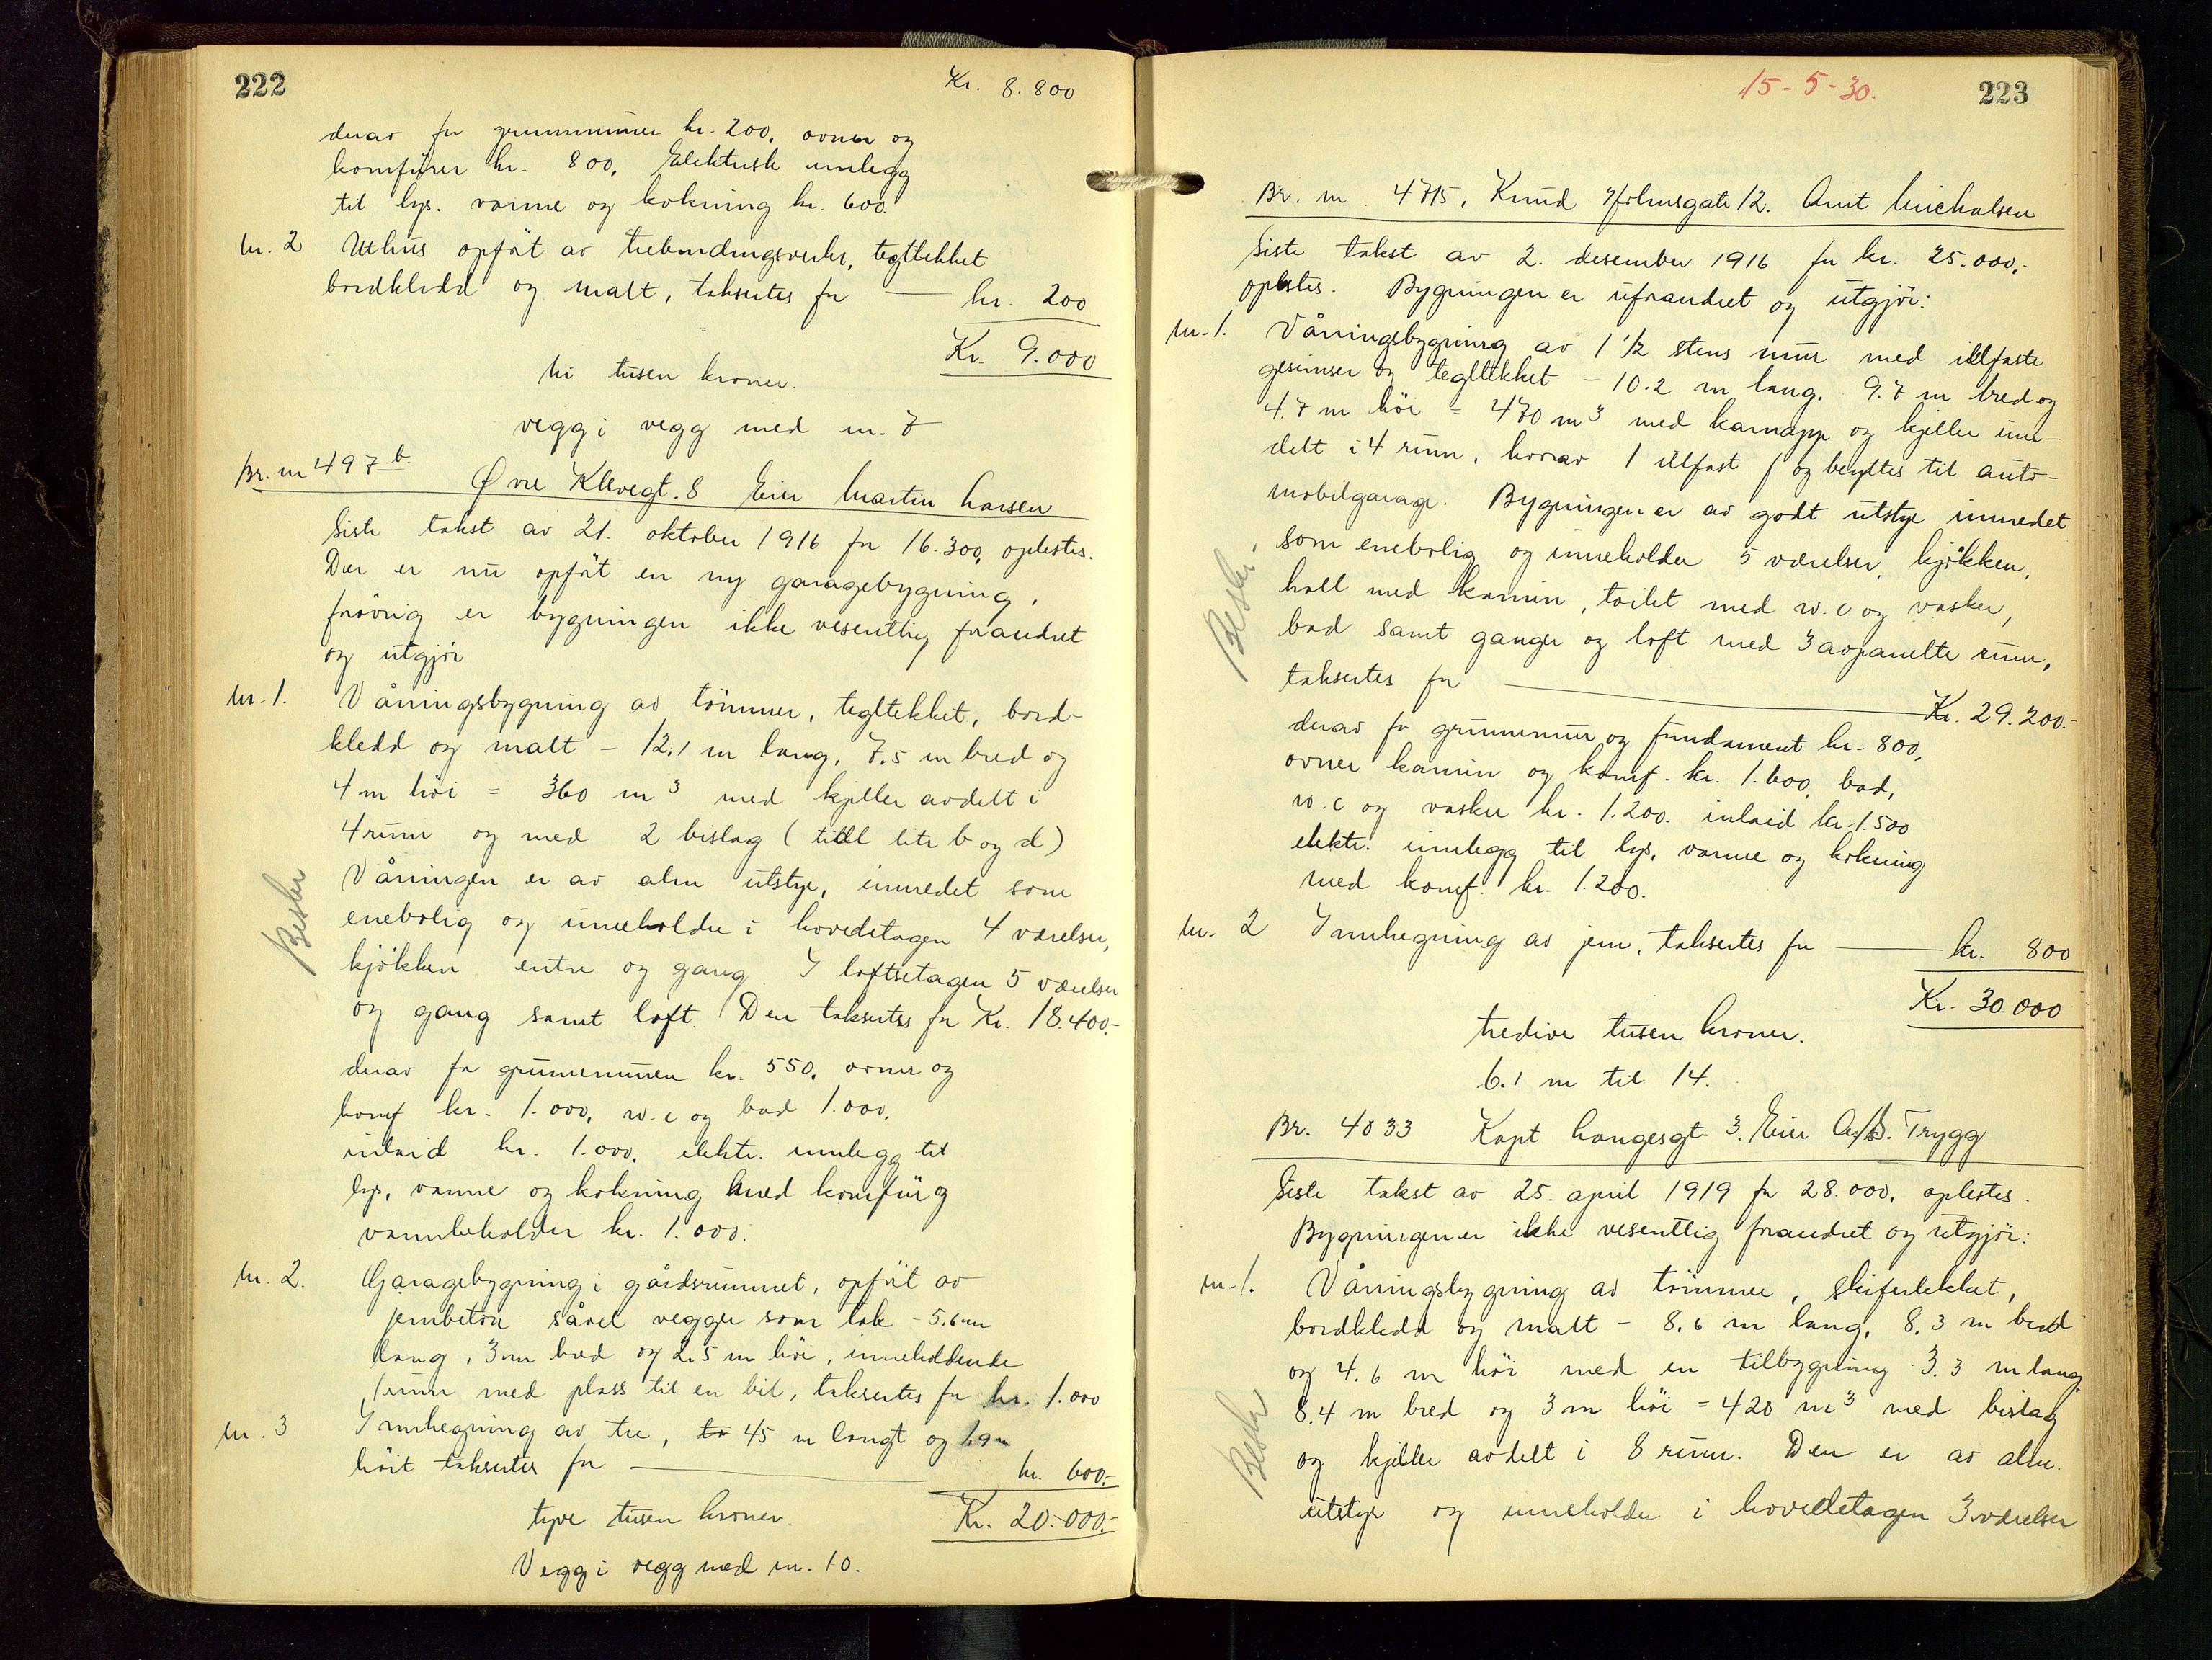 222
Kr. 8.800
derav for grunnmuren kr. 200, ovner og
komfyrer kr. 800, Elektrisk innlegg
til lys. varme og kokning kr. 600.
nr. 2 Uthus opført av trebindingsverk, tegltekket
bordkledd og malt, takseres for — kr. 200
Kr. 9.000
ni tusen kroner.
vegg i vegg med nr. 7
Br. nr 497 b. Øvre Klevegt. 8 Eier Martin Larsen
Siste takst av 21. oktober 1916 for 16.300, oplestes.
Der er nu opført en ny garagebygning,
forøvrig er bygningen ikke vesentlig forandret
og utgjør
nr. 1. Våningsbygning av tømmer, tegltekket, bord-
kledd og malt - 12.1 m lang, 7.5 m bred og
4 m høi = 360 m³ med kjeller avdelt i
4 rum og med 2 bislag (till litr b og d)
Våningen er av alm utstyr, innredet som
enebolig og inneholder i hovedetagen 4 værelser,
kjøkken entre og gang I loftsetagen 5 værelser
og gang samt loft. Den takseres for Kr. 18.400.-
derav for grunnmuren kr. 550, ovner og
komf kr. 1.000, w.c og bad 1.000,
inlaid kr. 1.000, elektr. innlegg til
lys, varme og kokning med komfür og
vannbeholder kr. 1.000.
nr. 2. Garagebygning i gårdsrummet, opført av
jernbeton såvel vegger som tak - 5.6 m
lang, 3 m bred og 2.5 m høi, inneholdende
1 rum med plass til en bil, takseres for kr. 1.000
nr. 3 Innhegning av tre, 45 m langt og 1.9 m
høit takseres for — kr. 600.-
Kr. 20.000.-
tyve tusen kroner.
Vegg i vegg med nr. 10.
Beskr
15-5-30.
223
Br. nr. 4715, Knud Holmsgate 12. Arnt Michalsen
Siste takst av 2. desember 1916 for kr. 25.000,-
oplestes. Bygningen er uforandret og utgjør:
nr. 1. Våningsbygning av 1 1/2 stens mur med ildfaste
gesimser og tegltekket - 10.2 m lang. 9.7 m bred og
4.7 m høi = 470 m³ med karnapp og kjeller inn-
delt i 4 rum, hvorav 1 ildfast og benyttes til auto-
mobilgarage. Bygningen er av godt utstyr innredet
som enebolig og inneholder 5 værelser, kjøkken,
hall med kamin, toilet med w.c og vasker,
bad samt ganger og loft med 3 avpanelte rum,
takseres for — Kr. 29.200.-
derav for grunnmur og fundament kr. 800,
ovner kamin og komf. kr. 1.600, bad,
w.c og vasker kr. 1.200. inlaid kr. 1.500
elektr. innlegg til lys, varme og kokning
med komf. kr. 1.200.
nr. 2 Innhegning av jern, takseres for — kr. 800
Kr. 30.000
tredive tusen kroner.
6.1 m til 14.
Br. 4033 Kapt Langesgt. 3. Eier A/S. Trygg
Siste takst av 25. april 1919 for 28.000, oplestes.
Bygningen er ikke vesentlig forandret og utgjør:
nr. 1. Våningsbygning av tømmer, skifertekket,
bordkledd og malt - 8.6 m lang, 8.3 m bred
og 4.6 m høi med en tilbygning 3.3 m lang
8.4 m bred og 3 m høi = 420 m³ med bislag
og kjeller avdelt i 8 rum. Den er av alm.
utstyr og inneholder i hovedetagen 3 værelser
Beskr.
Beskr